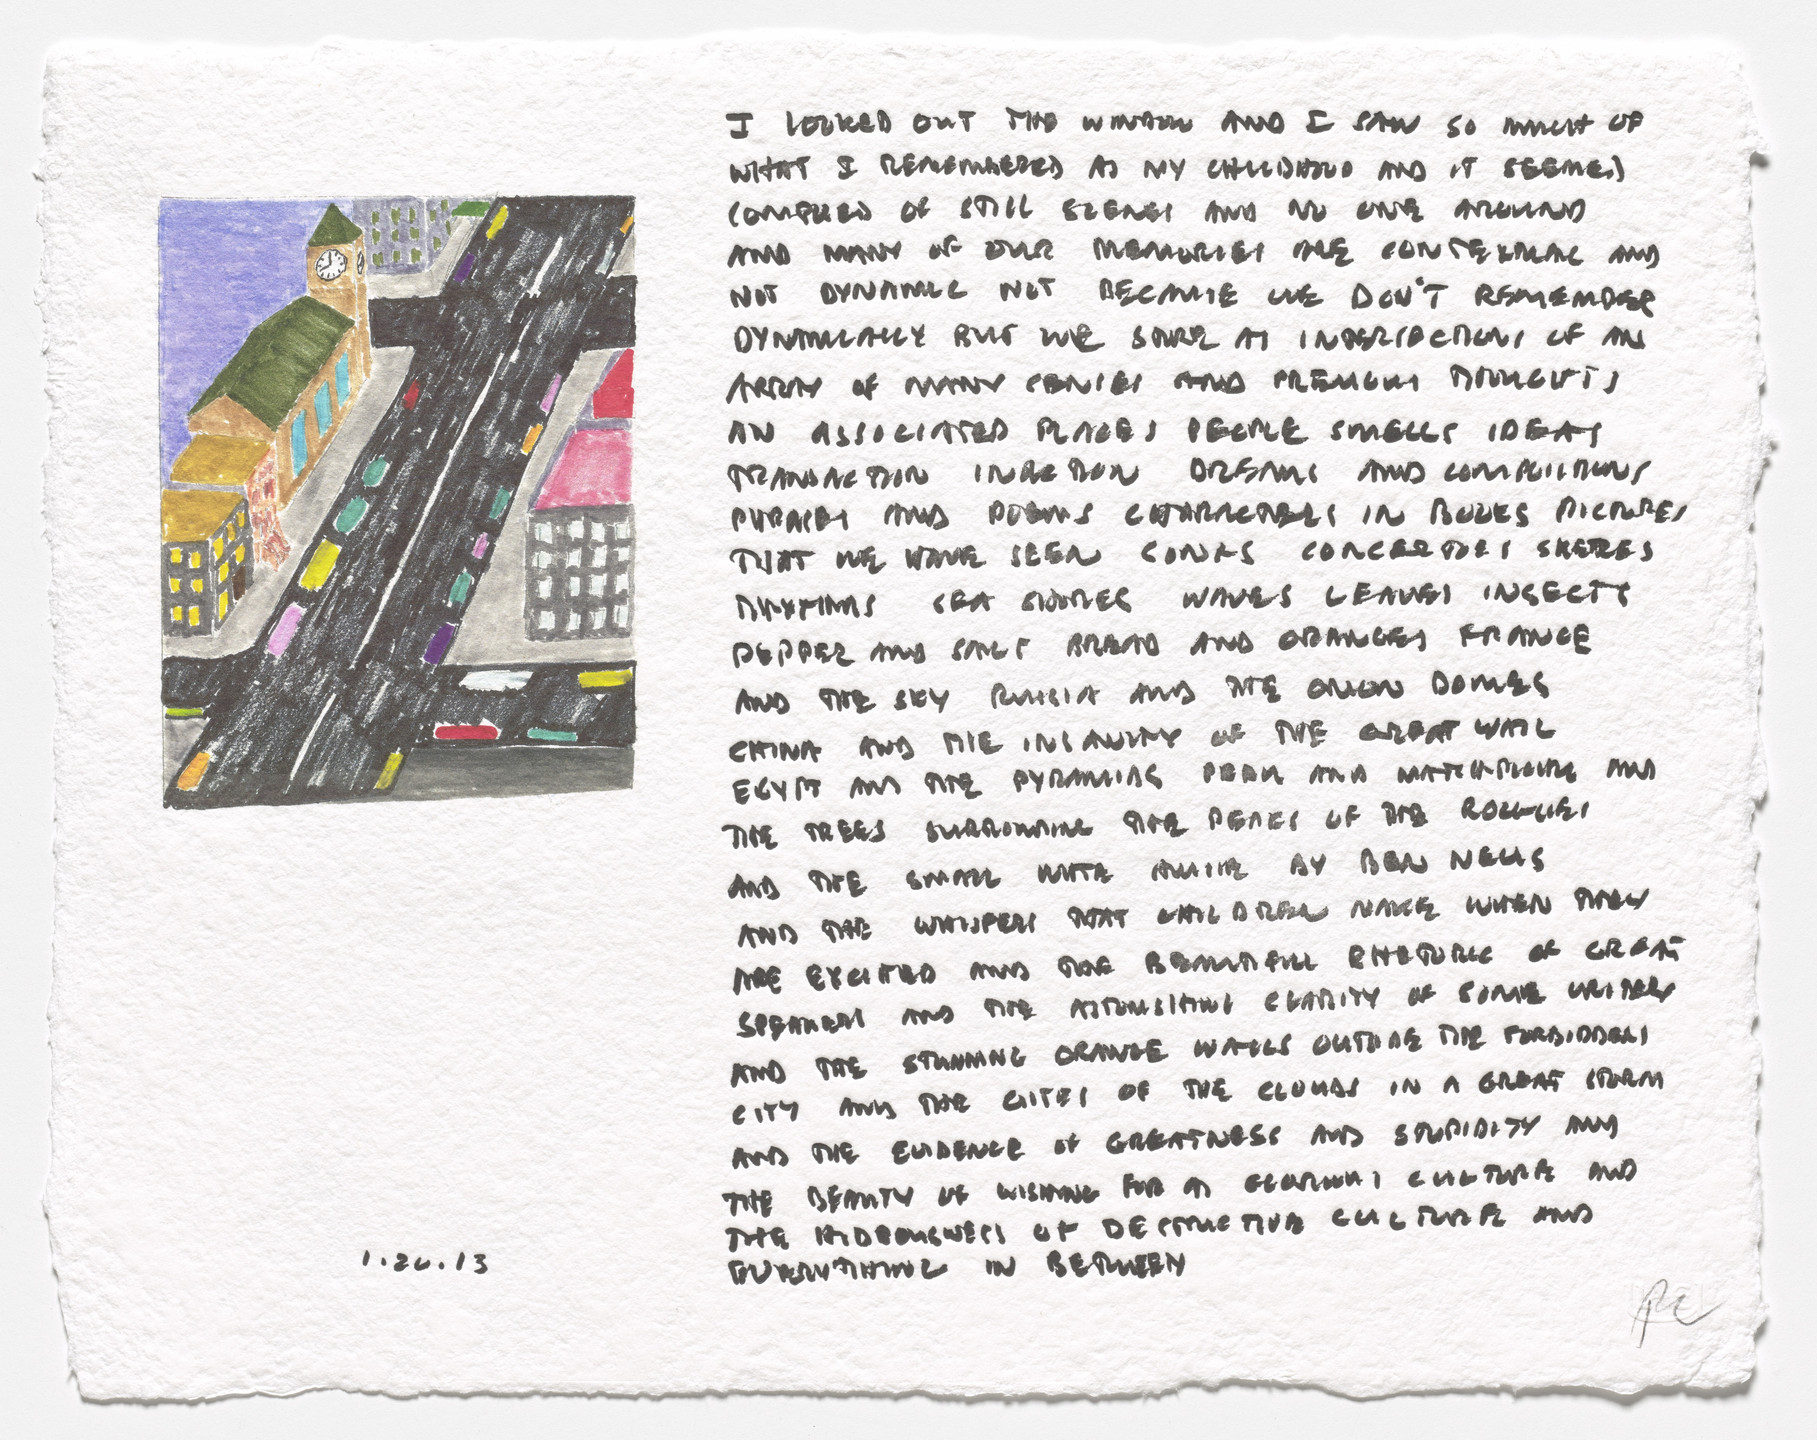 I LOOKED OUT THE WINDOW AND I SAW SO MUCH OF
WHAT I REMEMBERED AS MY CHILDHOOD AND IT SEEMED
COMPOSED OF STILL SCENES AND NO ONE AROUND
AND MANY OF OUR MEMORIES ARE CONTEXTUAL AND
NOT DYNAMIC NOT BECAUSE WE DON'T REMEMBER
DYNAMICALLY BUT WE STORE AT INTERSECTIONS OF AN
ARRAY OF MANY SENSES AND PREVIOUS THOUGHTS
AN ASSOCIATED PLACES PEOPLE SMELLS IDEAS
TRANSACTION DREAMS AND COMPOSITIONS
PHRASES AND POEMS CHARACTERS IN BOOKS PICTURES
THAT WE HAVE SEEN SONGS CONCERTOS SKETCHES
RHYTHMS SEA SHORES WAVES LEAVES INSECTS
PEPPER AND SALT BREAD AND ORANGES FRANCE
AND THE SKY RUSSIA AND THE ONION DOMES
CHINA AND THE INSANITY OF THE GREAT WALL
EGYPT AND THE PYRAMIDS PERU AND AND
THE TREES SURROUNDING THE PEAKS OF THE ROCKIES
AND THE SMALL WHITE BY BEN
AND THE WHISPERS THAT CHILDREN MAKE WHEN THEY
ARE EXCITED AND THE BEAUTIFUL RHETORIC OF GREAT
SPEAKERS AND THE ASTONISHING CLARITY OF SOME WRITERS
AND THE STUNNING ORANGE WALLS OUTSIDE THE FORBIDDEN
CITY AND THE OF THE CLOUDS IN A GREAT STORM
AND THE EVIDENCE OF GREATNESS AND STUPIDITY AND
THE BEAUTY OF WISHING FOR A GLORIOUS CULTURE AND
THE HIDEOUSNESS OF DESTRUCTIVE CULTURE AND
EVERYTHING IN BETWEEN
1.20.13